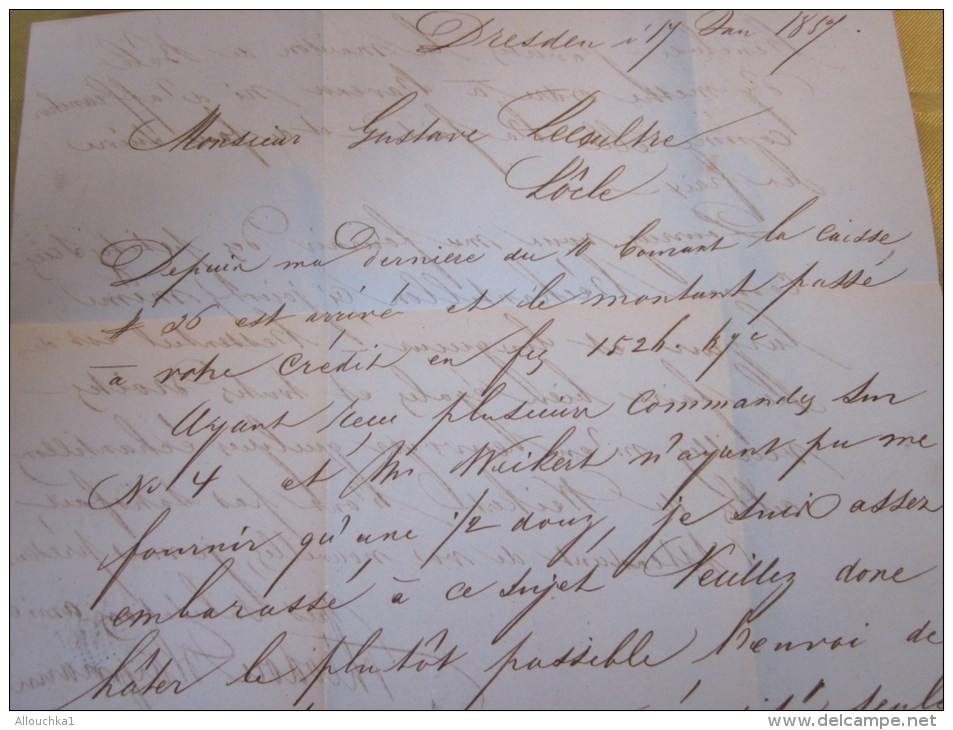 Dresden 17 Jan 1857.
Monsieur Gustave Lecoultre
Lôcle
Depuis ma dernière du 10 Courant la caisse
# 26 est arrivé et le montant passé
à votre crédit en
Ayant reçu plusieurs commandes sur
No 4 et Mr Weikert n'ayant pu me
fournir qu'une 1/2 douz, je suis assez
embarassé à ce sujet Veuillez donc
hâter le plutôt possible l'envoi de
Allouchka1
www.delcampe.net